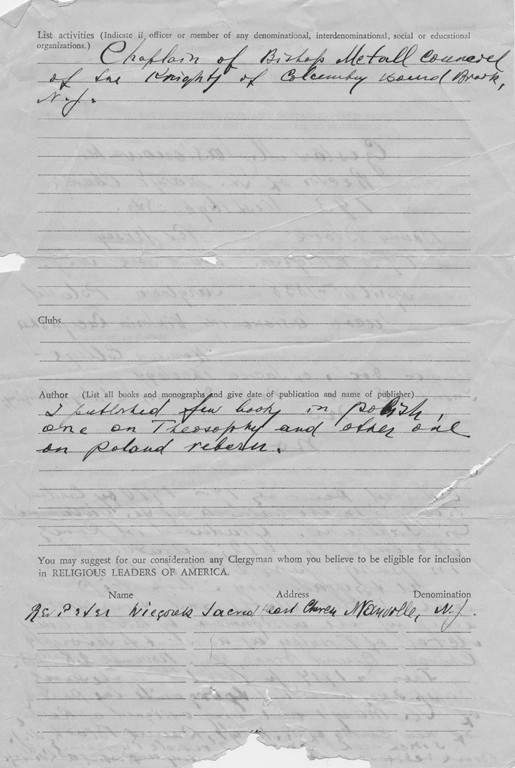 List activities (Indicate if officer or member of any denominational, interdenominational, social or educational
organizations.)
Chaplain of Bishop Metall Councel
of the Knights of Columby Bound Brook,
N.J.
Clubs
Author (List all books and monographs and give date of publication and name of publisher)
I published few books in polish,
one on Theosophy and other one
on poland reborn.
You may suggest for our consideration any Clergyman whom you believe to be eligible for inclusion
in RELIGIOUS LEADERS OF AMERICA.
Name Address Denomination
Rev Peter Sacred Heart Church Manville, N.J.